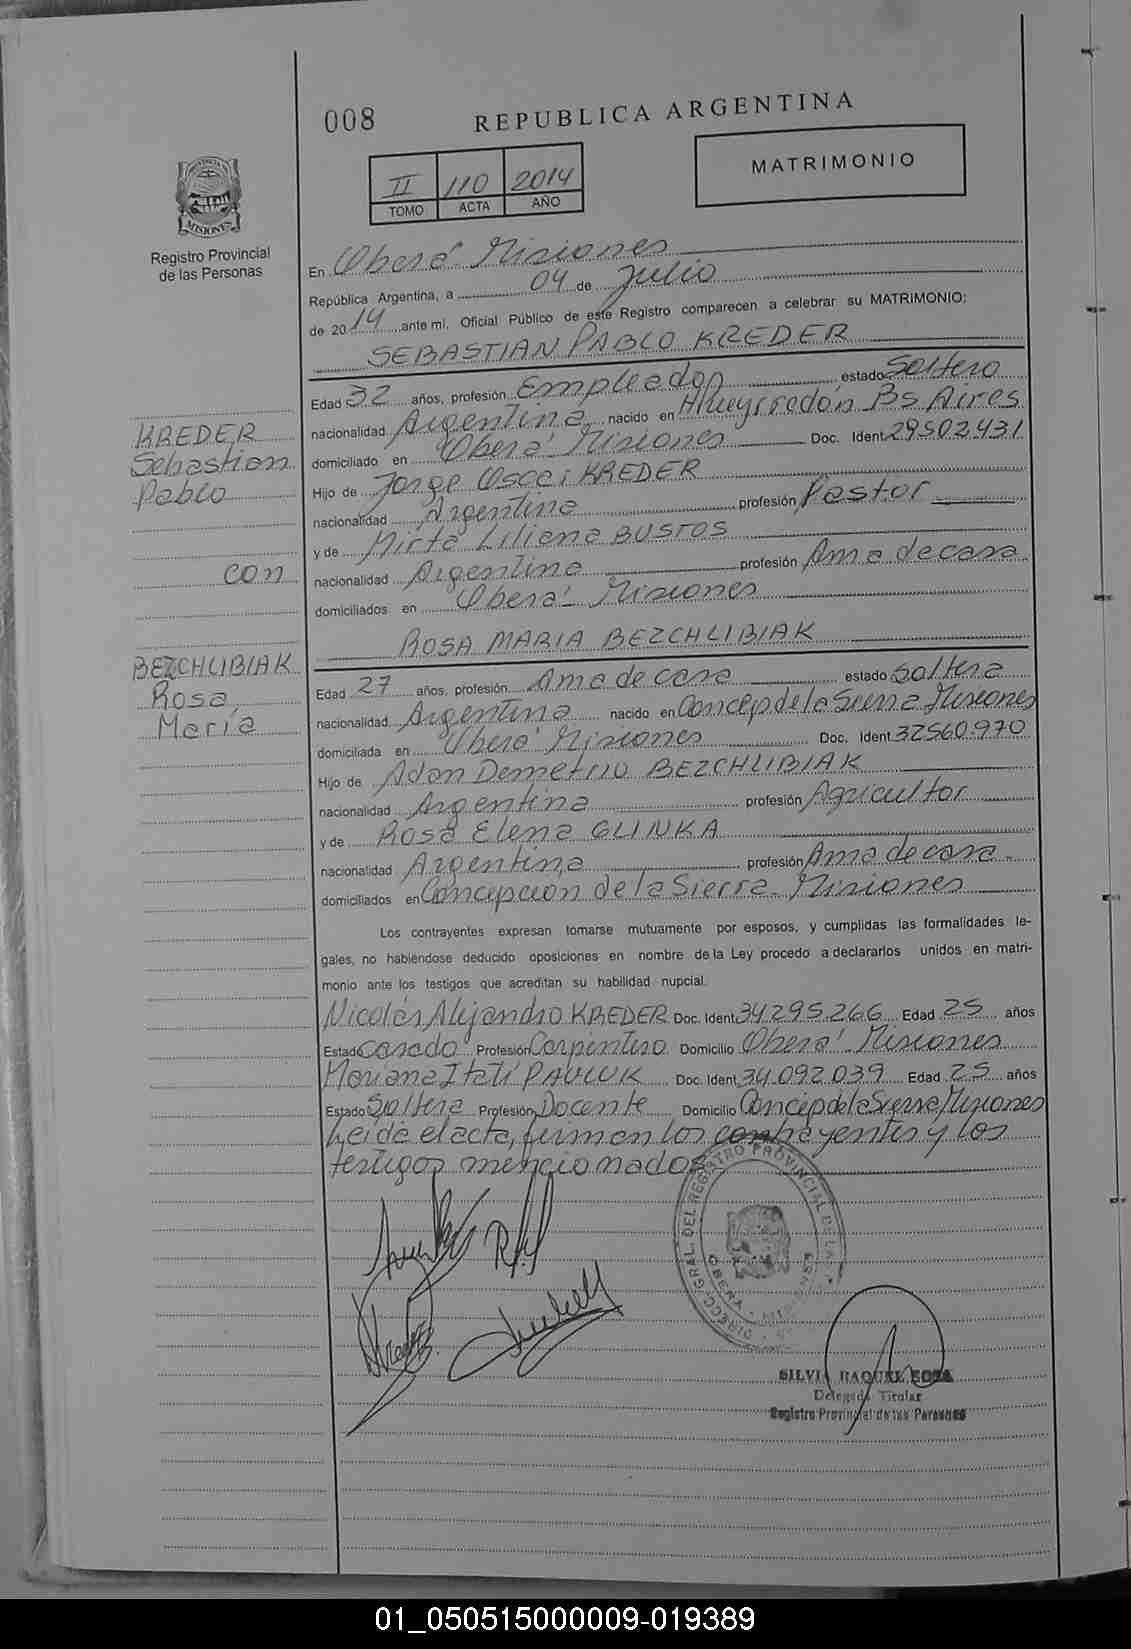 008
REPUBLICA ARGENTINA
II 110 2014
TOMO ACTA AÑO
MATRIMONIO
PROVINCIA DE MISIONES
Registro Provincial
de las Personas
En Oberá Misiones
República Argentina, a 04 de Julio
de 2014 ante mí, Oficial Público de este Registro comparecen a celebrar su MATRIMONIO:
SEBASTIAN PABLO KREDER
Edad 32 años, profesión Empleado estado Soltero
nacionalidad Argentina nacido en Pueyrredón Bs Aires
domiciliado en Oberá Misiones Doc. Ident 29502431
Hijo de Jorge Oscar KREDER
nacionalidad Argentina profesión Pastor
y de Mirta Liliana BUSTOS
nacionalidad Argentina profesión Ama de casa
domiciliados en Oberá Misiones
ROSA MARIA BEZCHLIBIAK
Edad 27 años, profesión Ama de casa estado Soltera
nacionalidad Argentina nacido en Concep de la Sierra Misiones
domiciliada en Oberá Misiones Doc. Ident 32560.970
Hijo de Adan Demetrio BEZCHLIBIAK
nacionalidad Argentina profesión Agricultor
y de Rosa Elena GLINKA
nacionalidad Argentina profesión Ama de casa.
domiciliados en Concepcion de la Sierra Misiones
Los contrayentes expresan tomarse mutuamente por esposos, y cumplidas las formalidades le-
gales, no habiéndose deducido oposiciones en nombre de la Ley procedo a declararlos unidos en matri-
monio ante los testigos que acreditan su habilidad nupcial.
Nicolás Alejandro KREDER Doc. Ident 34295.266 Edad 25 años
Estado Casado Profesión Carpintero Domicilio Oberá Misiones
Mariana Itatí PAVLUK Doc. Ident 34.092.039 Edad 25 años
Estado Soltera Profesión Docente Domicilio Concep de la Sierra Misiones
Leída el acta, firman los contrayentes y los
testigos mencionados
KREDER
Sebastian
Pablo
con
BEZCHLIBIAK
Rosa
María
DIRECC. GRAL. DEL REGISTRO PROVINCIAL DE LAS
OBERA - MISIONES
SILVIA RAQUEL SOSA
Delegada Titular
Registro Provincial de las Personas
01_050515000009-019389